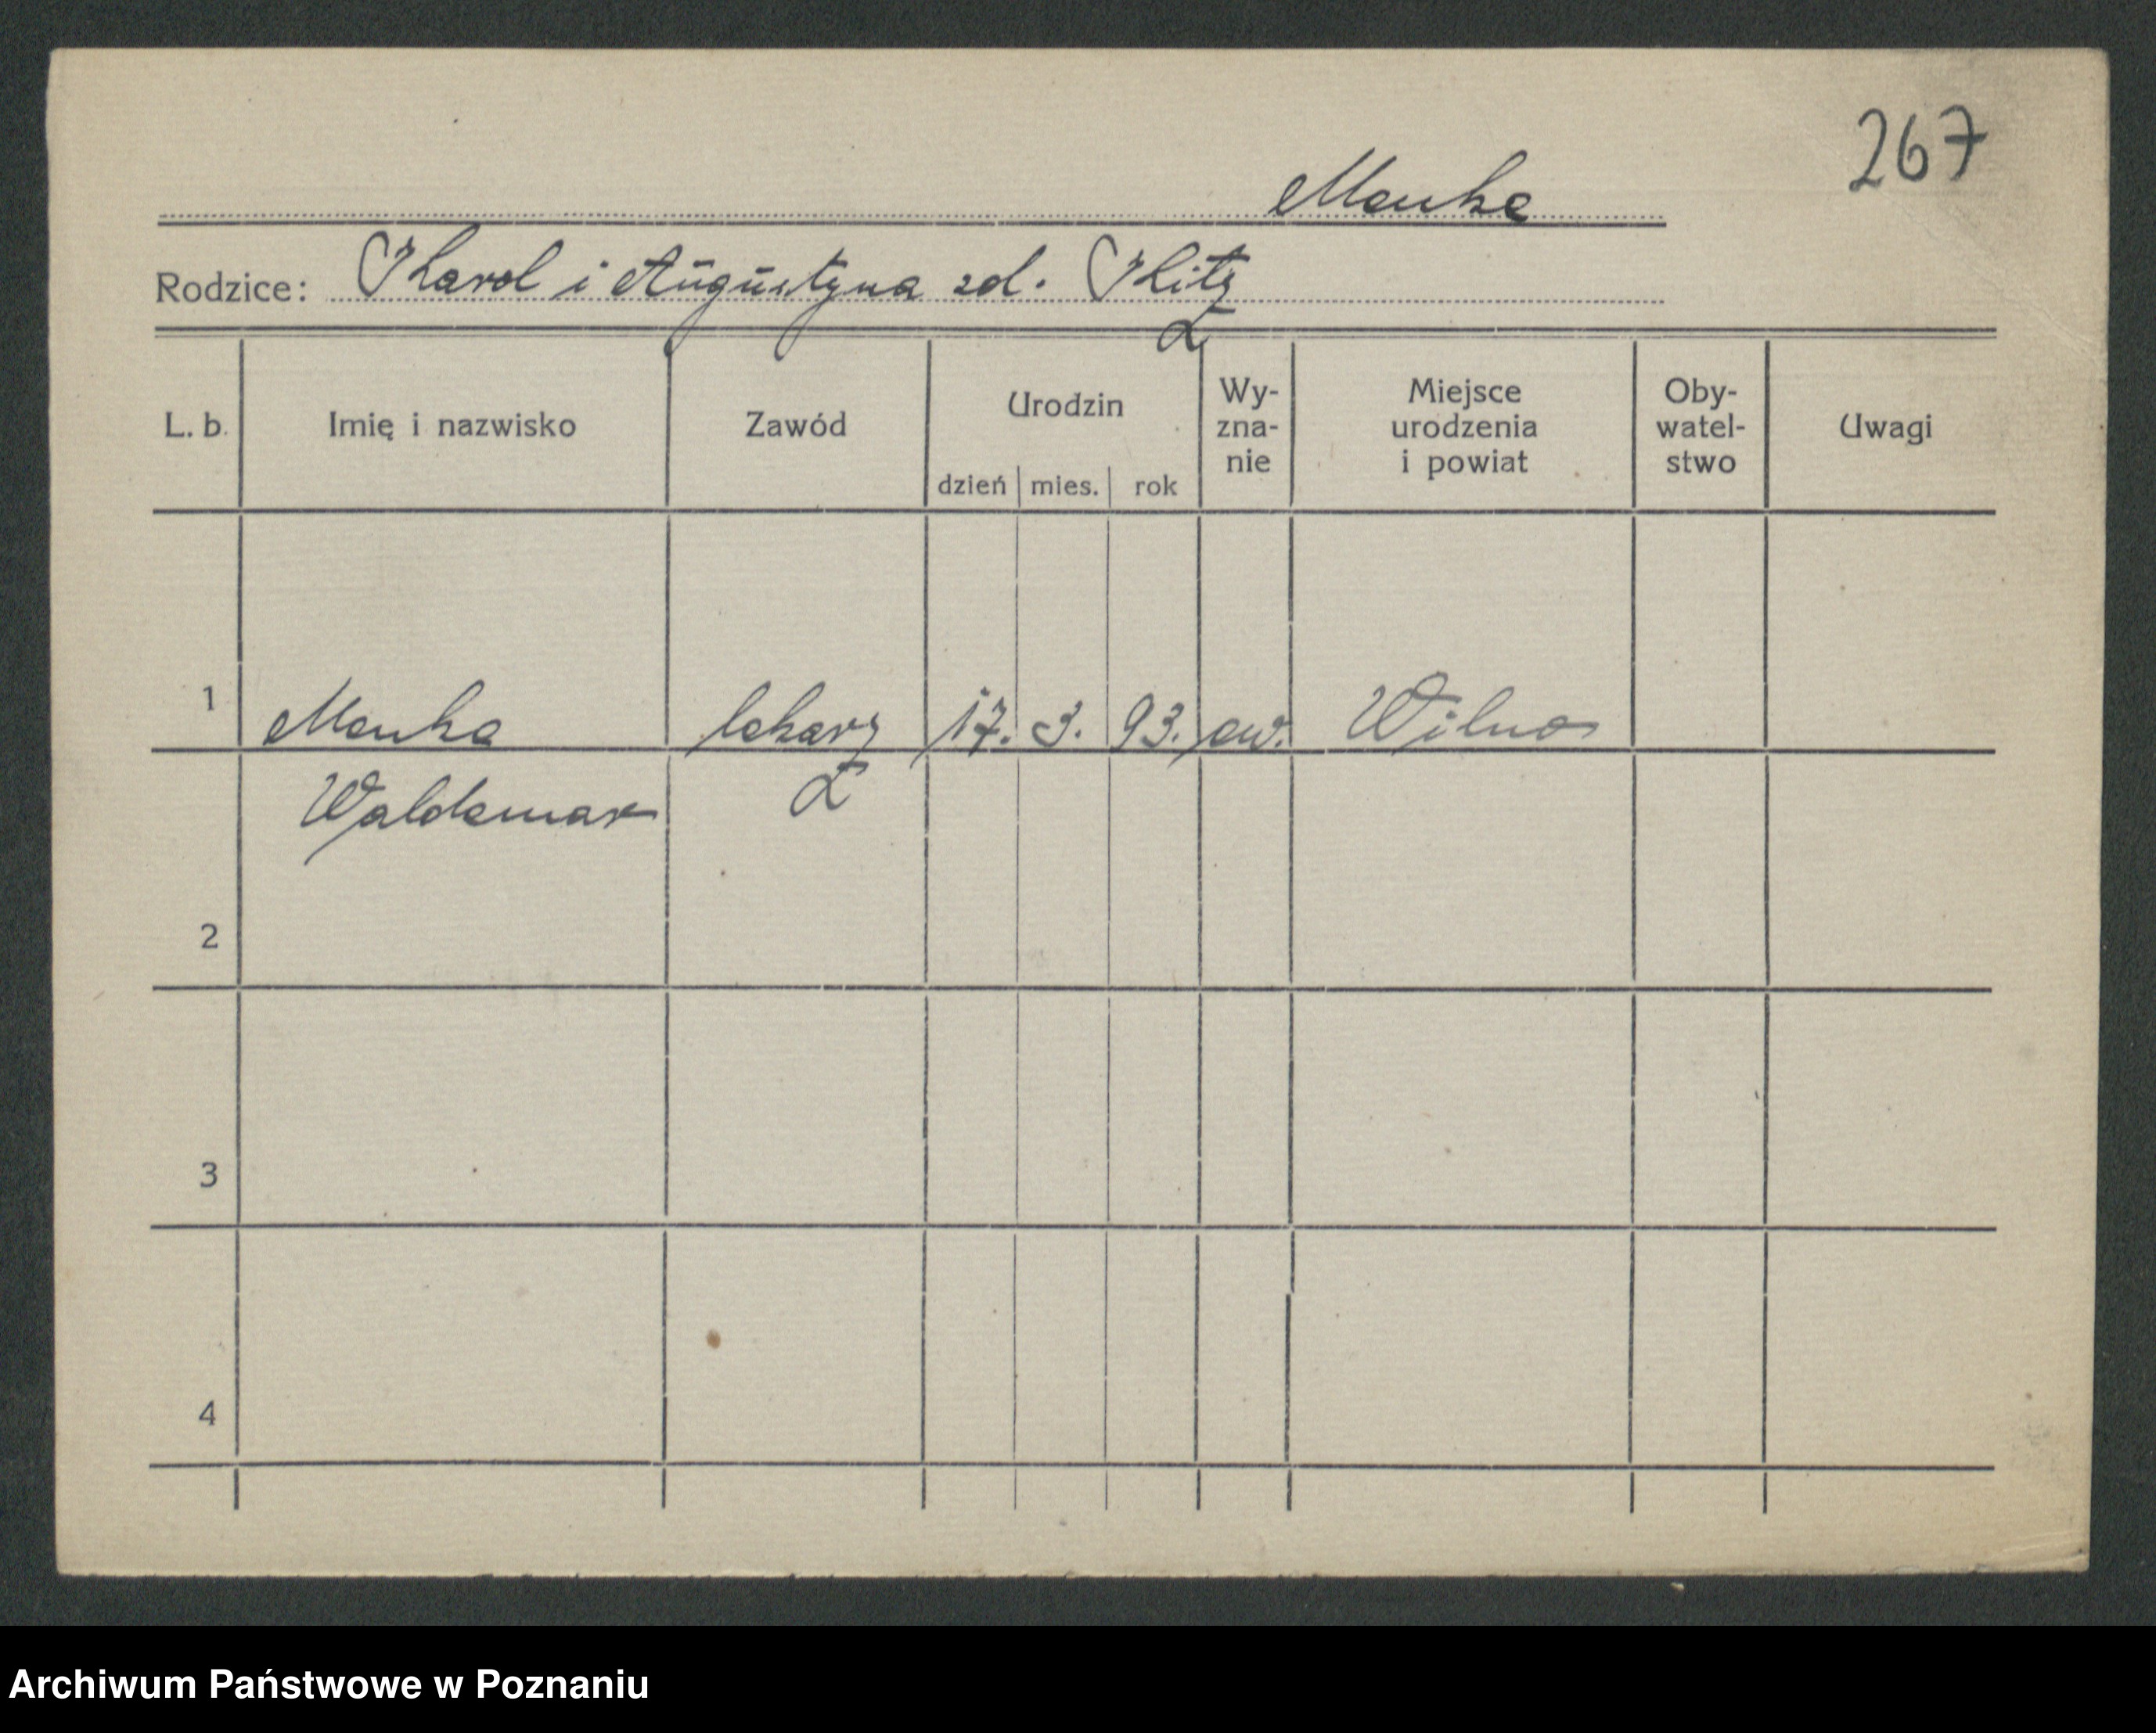 267
Menke
Rodzice: Karol i Augustyna zd. Kitz
L. b. Imię i nazwisko Zawód Urodzin Wy-zna-nie Miejsce urodzenia i powiat Oby-watel-stwo Uwagi
dzień mies. rok
1 Menke lekarz 17. 3. 93. ew. Wilno
Waldemar
2
3
4
Archiwum Państwowe w Poznaniu